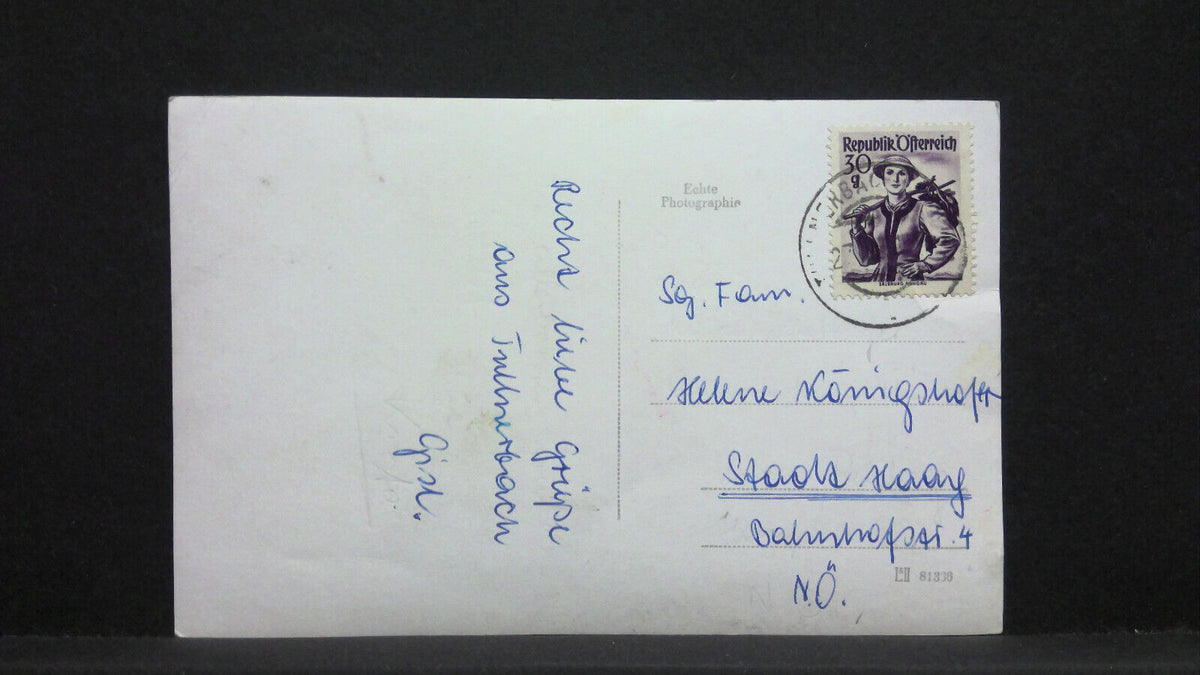 Recht liebe Grüße
aus Tullnerbach
Gisl.
Echte
Photographie
Republik Österreich
30
g
SALZBURG, PONGAU
Sg. Fam.
Helene Königshofer
Stadt Haag
Bahnhofstr. 4
N.Ö.
81338